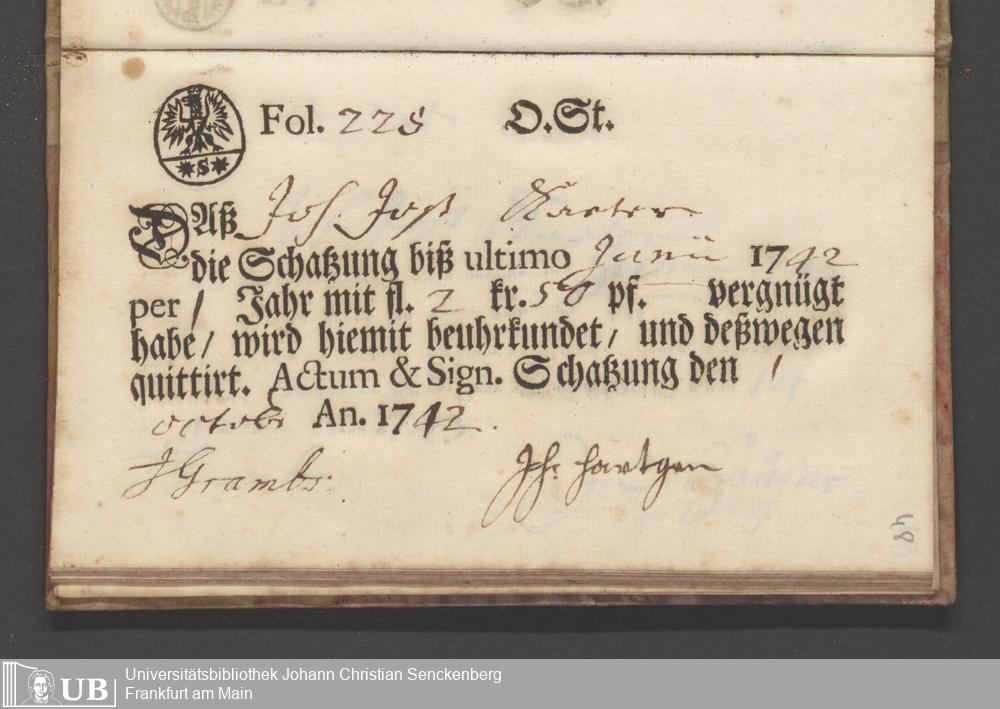 Fol. 228 O.St.
*S*
DAß Joh. Jost
die Schatzung biß ultimo Junii 1742
per 1 Jahr mit fl. 2 kr. 50 pf. — vergnügt
habe / wird hiemit beuhrkundet / und deßwegen
quittirt. Actum & Sign. Schatzung den 1
octobr An. 1742.
JGrambs. Joh: hartgen
48
UB
Universitätsbibliothek Johann Christian Senckenberg
Frankfurt am Main